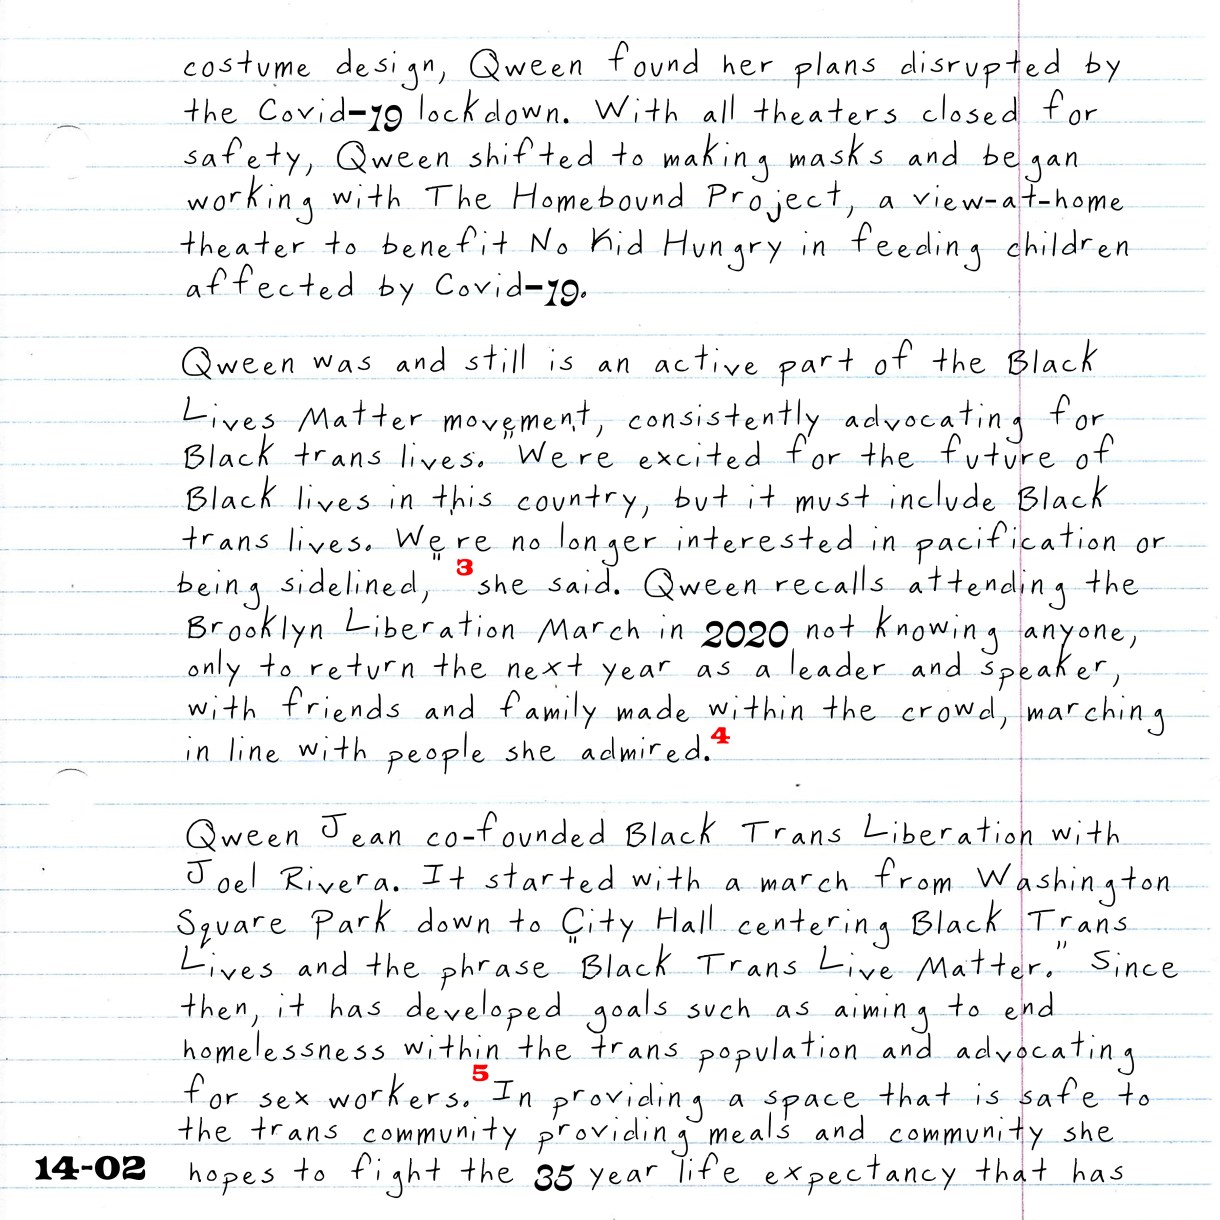 costume design, Qween found her plans disrupted by
the Covid-19 lockdown. With all theaters closed for
safety, Qween shifted to making masks and began
working with The Homebound Project, a view-at-home
theater to benefit No Kid Hungry in feeding children
affected by Covid-19.
Qween was and still is an active part of the Black
Lives Matter movement, consistently advocating for
Black trans lives. "We're excited for the future of
Black lives in this country, but it must include Black
trans lives. We're no longer interested in pacification or
being sidelined," 3 she said. Qween recalls attending the
Brooklyn Liberation March in 2020 not knowing anyone,
only to return the next year as a leader and speaker,
with friends and family made within the crowd, marching
in line with people she admired.4
Qween Jean co-founded Black Trans Liberation with
Joel Rivera. It started with a march from Washington
Square Park down to City Hall centering Black Trans
Lives and the phrase "Black Trans Live Matter." Since
then, it has developed goals such as aiming to end
homelessness within the trans population and advocating
for sex workers.5 In providing a space that is safe to
the trans community providing meals and community she
14-02 hopes to fight the 35 year life expectancy that has